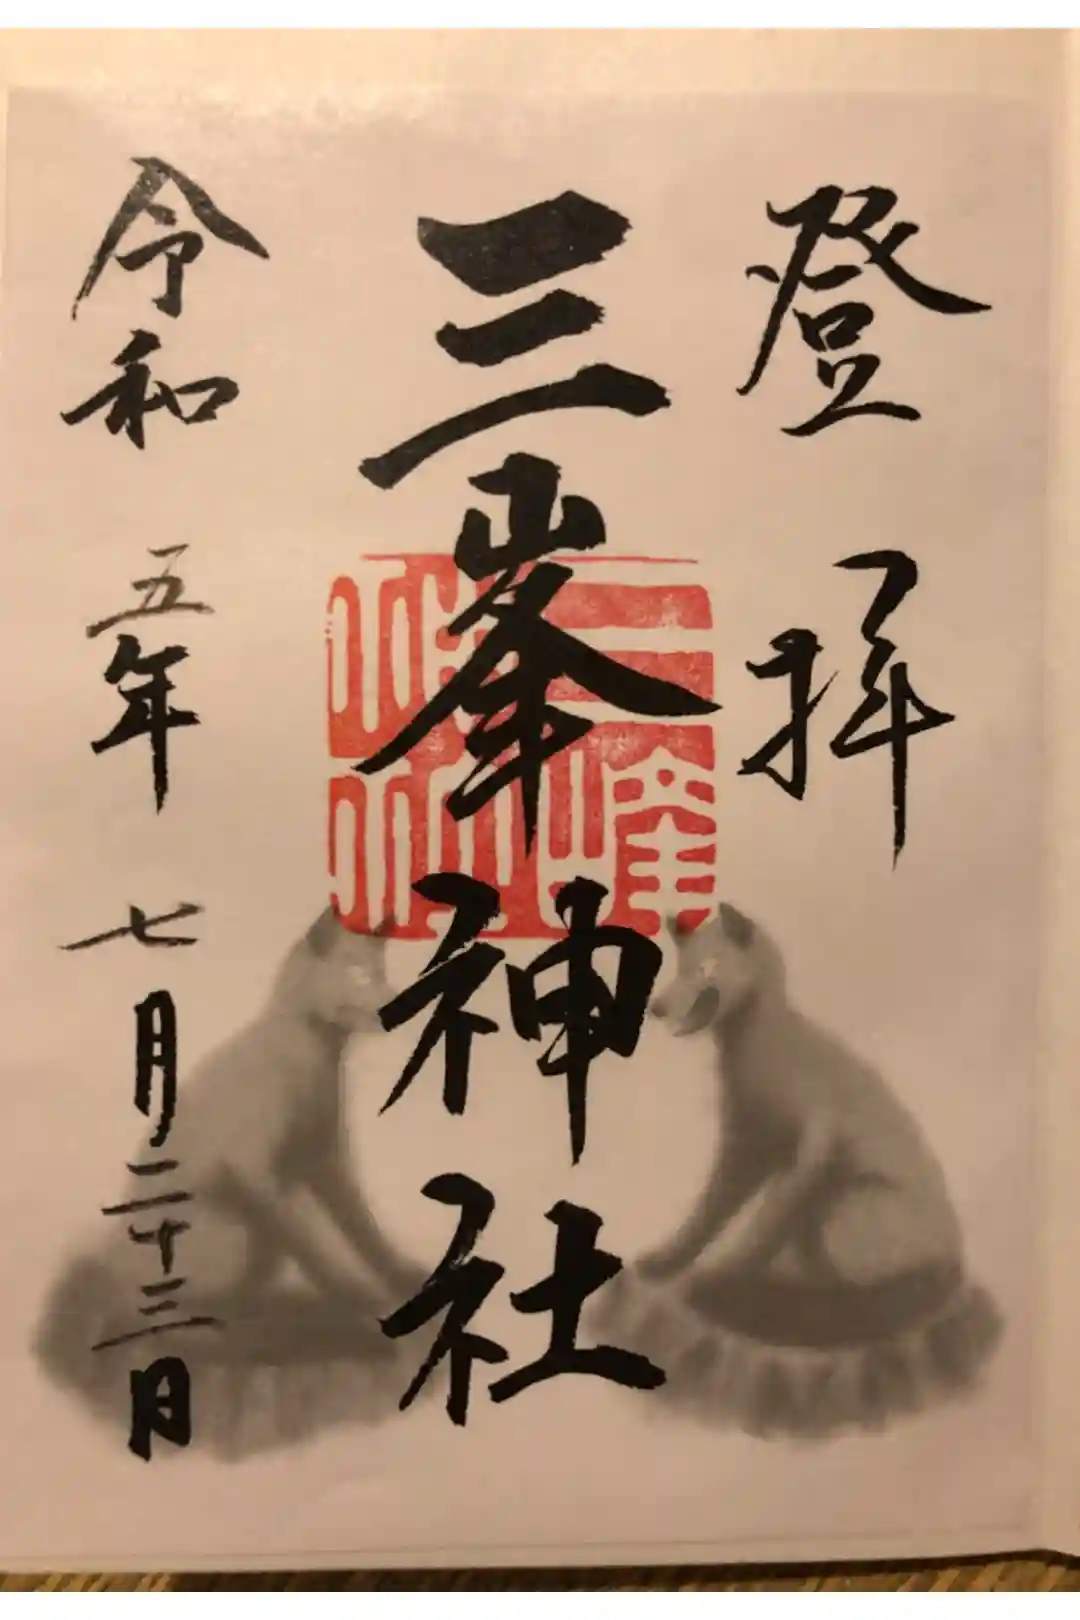 登拝
三峯神社
令和五年七月二十三日